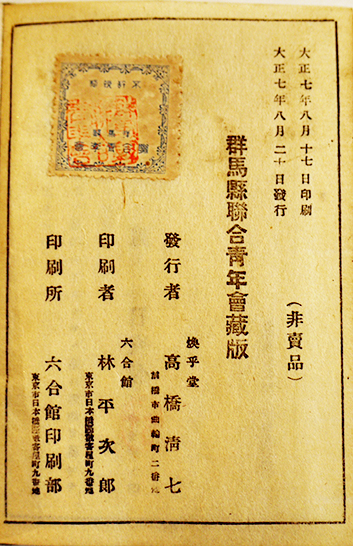 大正七年八月十七日印刷
大正七年八月二十日發行
(非賣品)
群馬縣聯合靑年會藏版
發行者
煥乎堂
高橋淸七
前橋市曲輪町二番地
印刷者
六合館
林平次郎
東京市日本橋區數寄屋町九番地
印刷所
六合館印刷部
東京市日本橋區數寄屋町九番地